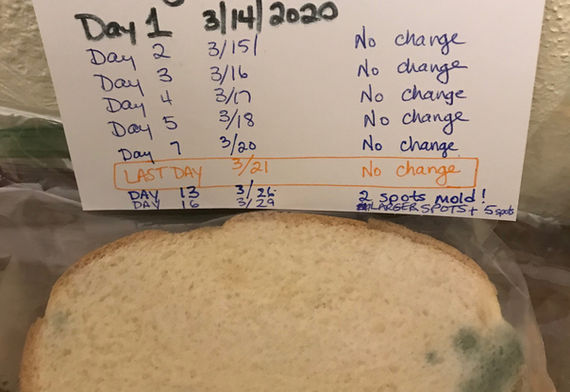 Day 1 3/14/2020
Day 2 3/15/ No change
Day 3 3/16 No change
Day 4 3/17 No change
Day 5 3/18 No change
Day 7 3/20 No change
LAST DAY 3/21 No change
DAY 13 3/26 2 spots mold!
DAY 16 3/29 LARGER SPOTS + 5 spots